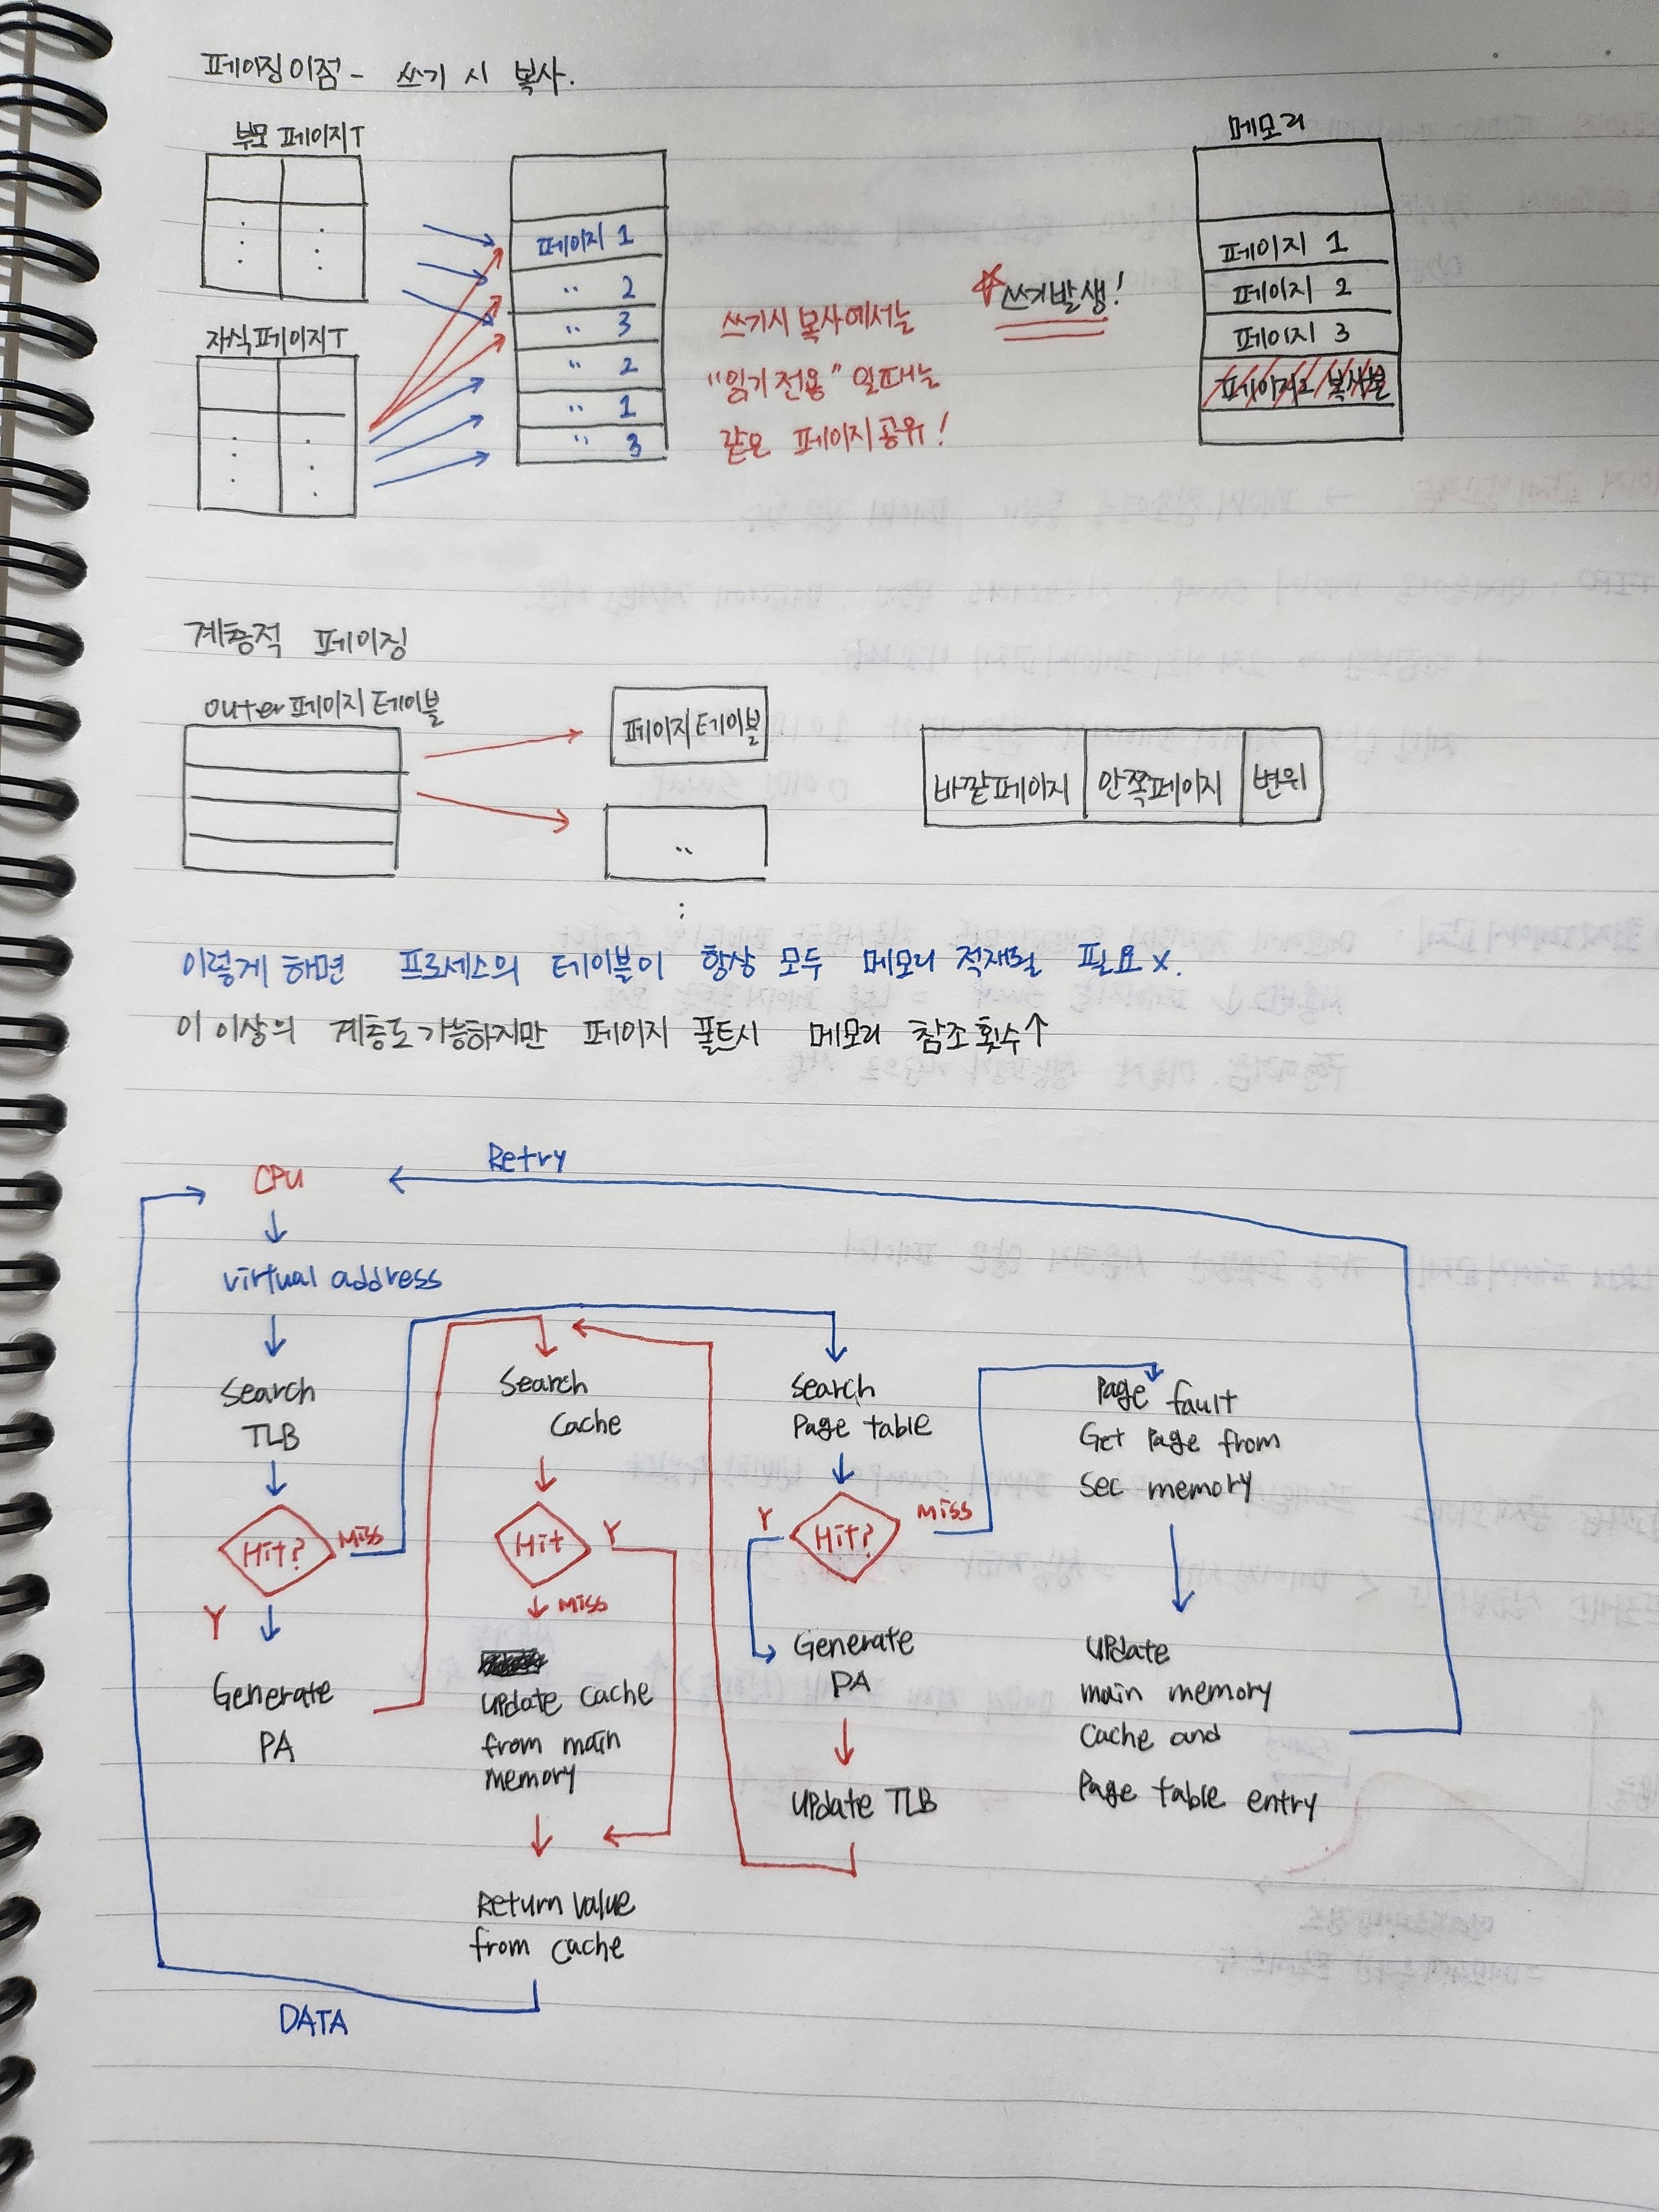 페이징 이점 - 쓰기 시 복사.
부모 페이지T
자식 페이지T
페이지 1
〃 2
〃 3
〃 2
〃 1
〃 3
쓰기시 복사에서는
"읽기 전용" 일때는
같은 페이지 공유!
쓰기발생!
메모리
페이지 1
페이지 2
페이지 3
페이지2 복사본
계층적 페이징
outer 페이지 테이블
페이지 테이블
〃
바깥페이지
안쪽페이지
변위
이렇게 하면 프로세스의 테이블이 항상 모두 메모리 적재될 필요 x.
이 이상의 계층도 가능하지만 페이지 폴트시 메모리 참조 횟수↑
Retry
CPU
virtual address
Search
TLB
Hit?
Miss
Y
Generate
PA
Search
Cache
Hit
Y
Miss
update cache
from main
memory
Return value
from cache
DATA
Search
Page table
Hit?
Y
Miss
Generate
PA
update TLB
Page fault
Get Page from
Sec memory
update
main memory
Cache and
Page table entry